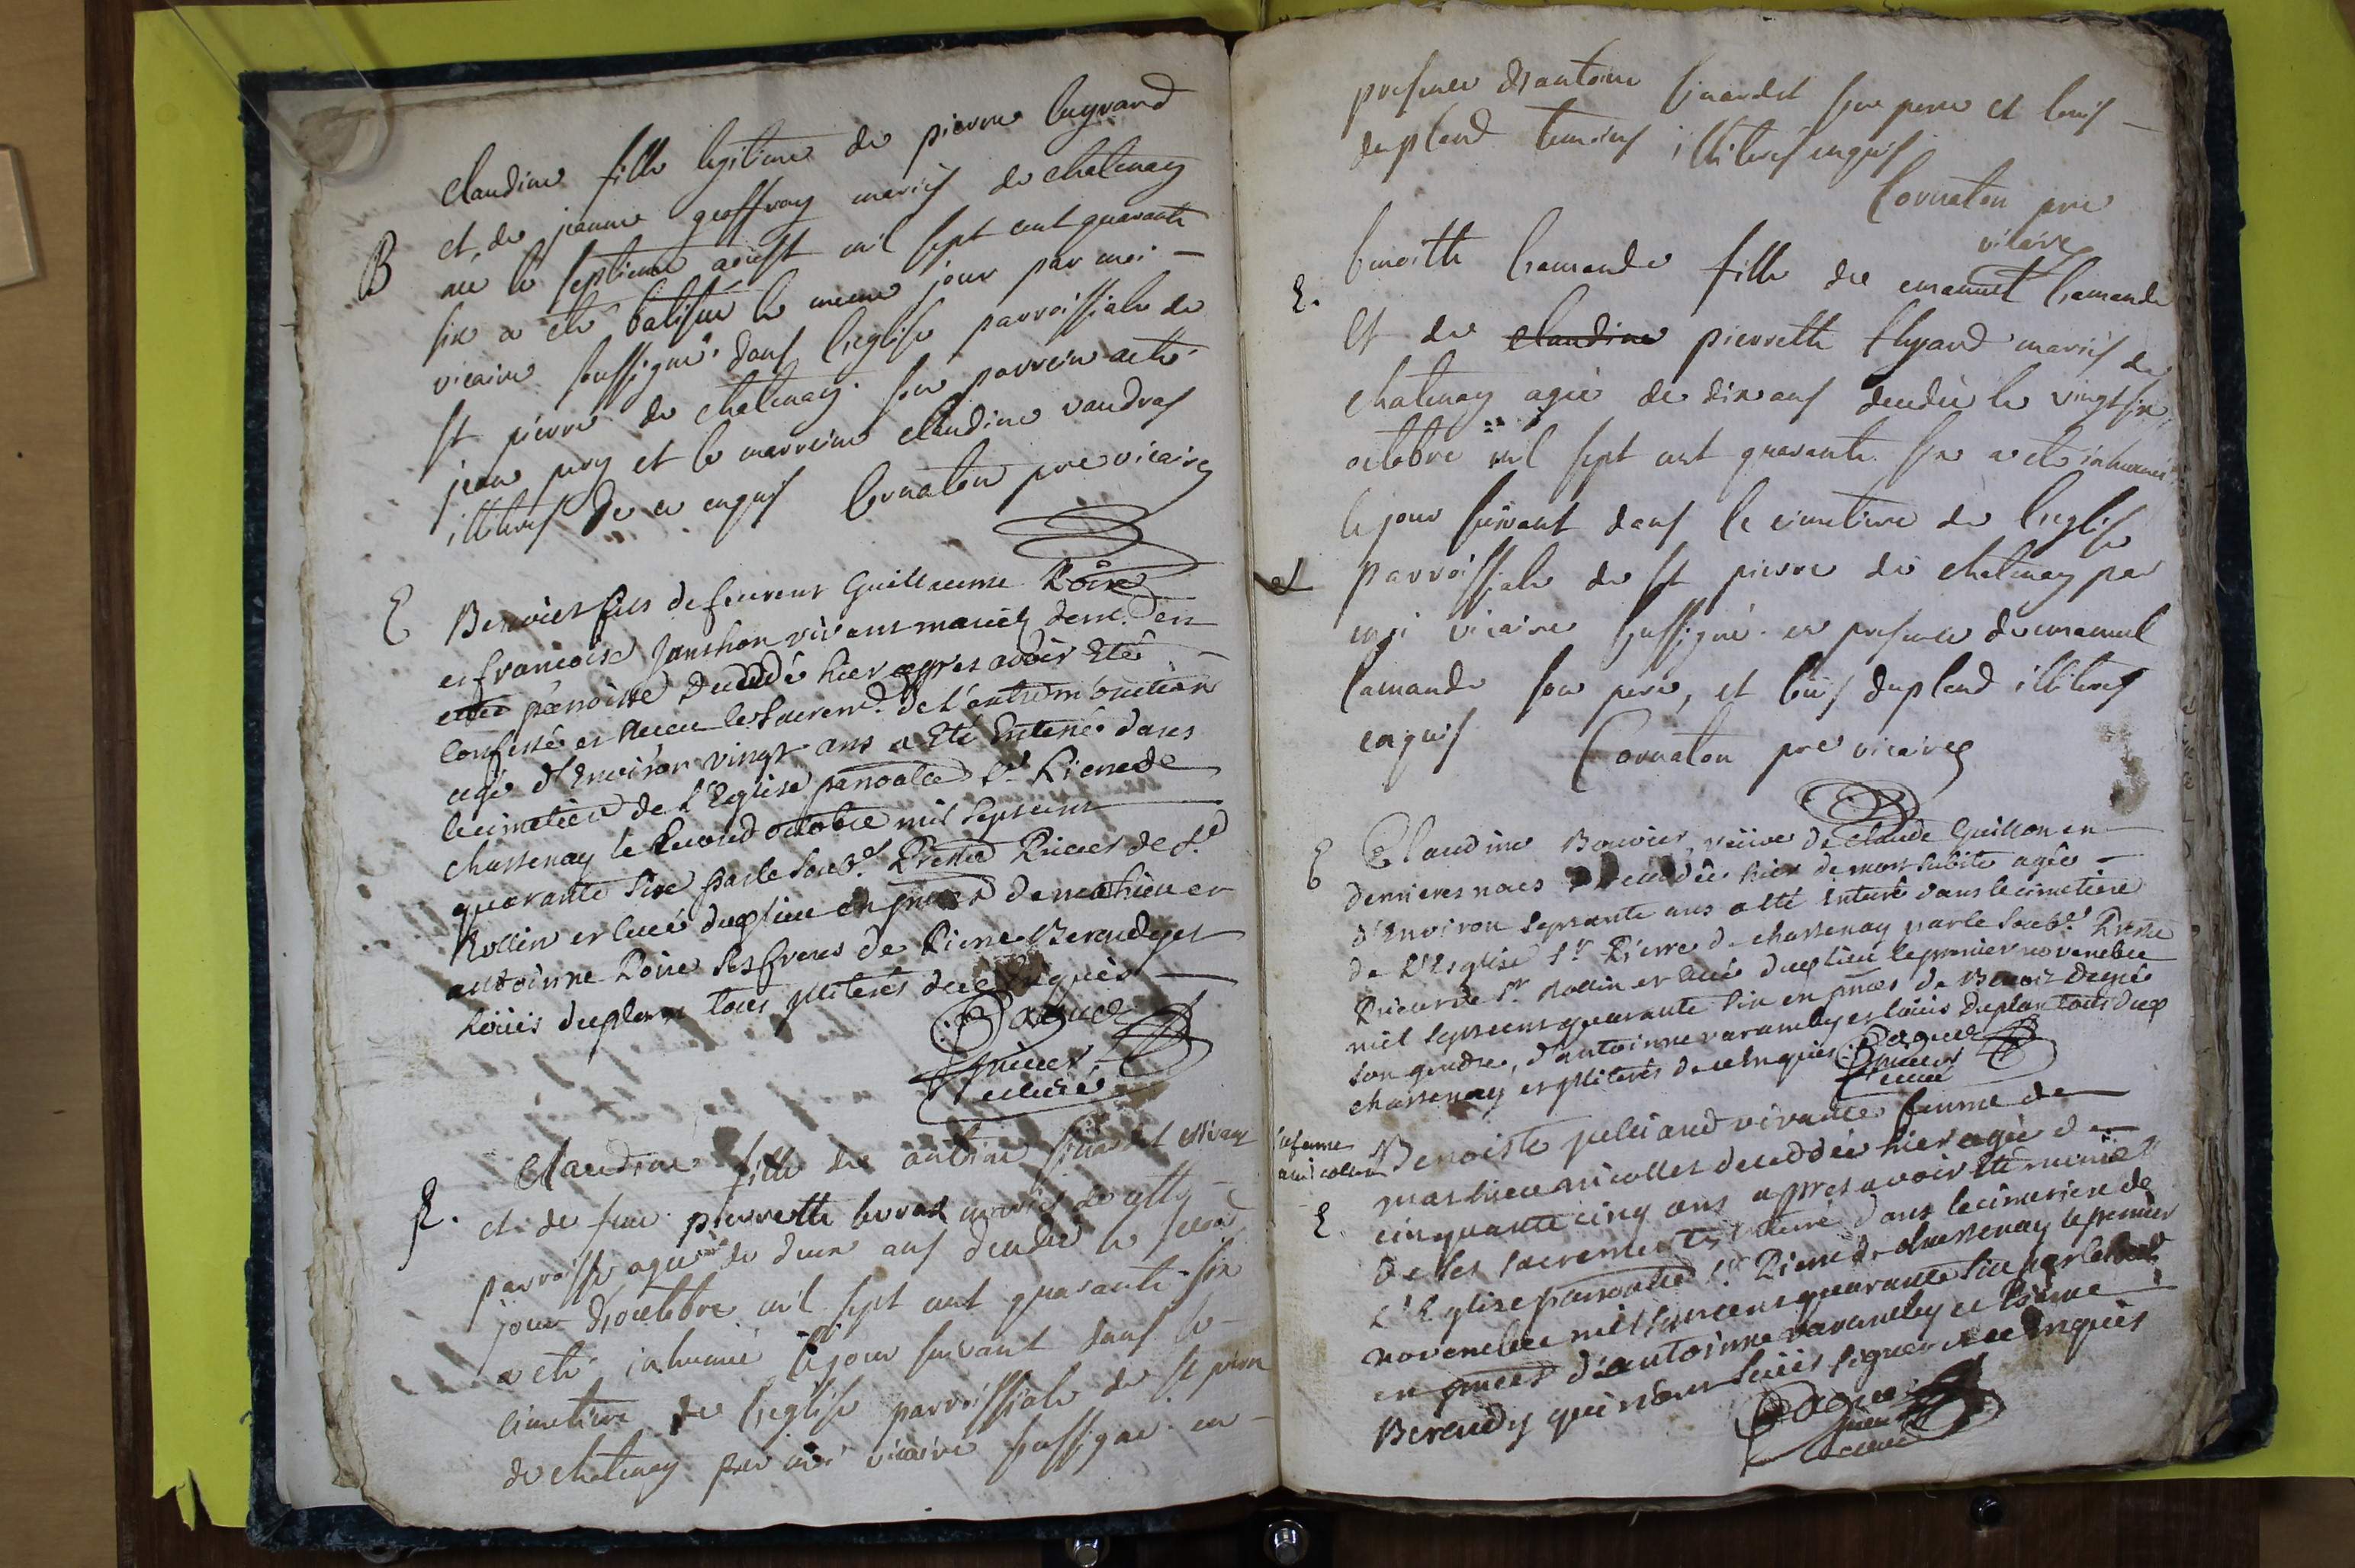 Claudine fille legitime de pierre legrand
B et de jeanne geoffray mariés de chatenay
nee le septieme aoust mil sept cent quarante
six a eté batisée le meme jour par moi
vicaire soussigné dans l'eglise parroissiale de
st pierre de chatenay son parrein a eté
jean pery et la marreine claudine vaudras
illiterés de ce enquis Cornaton pre vicaire
E Benoist fils de feurent Guillaume Poire
et francoise Janthon vivant mariés dem.t en
cette paroisse decedé hier apres avoir Eté
confessé et Reçu le sacrem.t de l'extrem'onction
agé d'Environ vingt ans a Eté Enterré dans
le cimetiere de L'Eglise paroalle St Pierre de
chastenay le second octobre mil septcent
quarante six par le soub.é Prestre Prieur de St
Rollin et curé dud lieu en pnces de mathieu et
antoinne Poire ses freres de Pierre Beraudy et
Loüis duplan tous jlliterés de ce Enquis
Paquet
prieur
et curé
Claudine fille de antoine linardet vivant
E. et de feue pierrette levrat mariés de cette
parroisse agée de deux ans decedée le second
jour d'octobre mil sept cent quarante six
a eté inhumée le jour suivant dans le
cimetiere de l'eglise parroissiale de st pierre
de chatenay par moi vicaire soussigné en
presence d'antoine linardet son pere et louis
dupland temoins illiterés enquis
Cornaton pre
vicaire
E. benoitte lamande fille de emanuel lamande
et de claudine pierrette thyard mariés de
chatenay agée de dix ans decedée le vingt six
octobre mil sept cent quarante six a eté inhumée
le jour suivant dans le cimetiere de l'eglise
parroissiale de st pierre de chatenay par
moi vicaire soussigné en presence d'emanuel
lamande son pere, et louis dupland illiterés
enquis Cornaton pre vicaire
E Claudine Bouvier veüve de claude Guillon en
dernieres noces decedée hier de mort subite agée
d'Environ septante ans a été Enterré dans le cimetiere
de L'Esglise St Pierre de chastenay par le soub.é Prestre
Prieur de St Rollin et curé dud lieu le premier novembre
mil septcent quarante six en pnces de Benoit
son gendre, d'antoinne varambey et loüis duplan tous dud
chastenay et jlliterés de ce Enquis Paquet
prieur
et curé
la femme
a nicollet Benoiste vivante femme de
mathieu nicollet decedée hier agée de
E. cinquante cinq ans apres avoir Eté munie
de ses sacrements Enterré dans le cimetiere de
L'Eglise paroalle St Pierre de chastenay le premier
novembre mil septcent quarante six par le soub.é
en pnces d'antoinne varambey et Pierre
Beraudy qui n'ont sceu signer de ce Enquis
Paquet
prieur
et curé